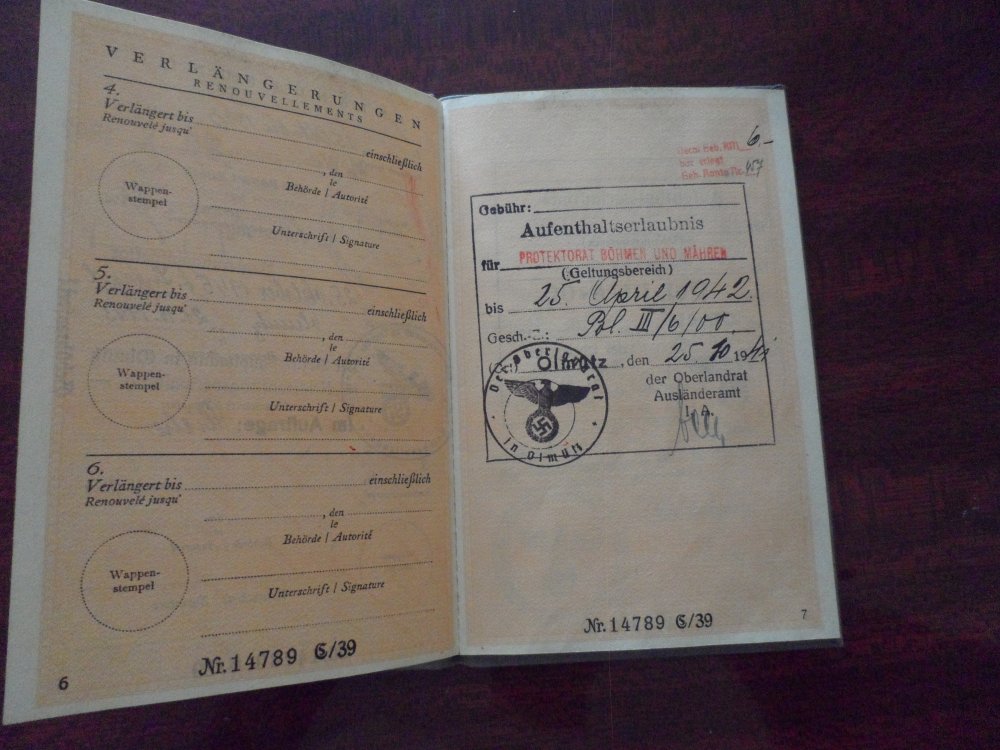 VERLÄNGERUNGEN
RENOUVELLEMENTS
4.
Verlängert bis
Renouvelé jusqu'
einschließlich
, den
le
Behörde / Autorité
Wappen-
stempel
Unterschrift / Signature
5.
Verlängert bis
Renouvelé jusqu'
einschließlich
, den
le
Behörde / Autorité
Wappen-
stempel
Unterschrift / Signature
6.
Verlängert bis
Renouvelé jusqu'
einschließlich
, den
le
Behörde / Autorité
Wappen-
stempel
Unterschrift / Signature
Nr. 14789 C/39
6
Geb. RM 6.-
Nr. 457
Gebühr:
Aufenthaltserlaubnis
für PROTEKTORAT BÖHMEN UND MÄHREN
(Geltungsbereich)
bis 25. April 1942.
Gesch.-Z.: Pol. III/6/00.
Olmütz, den 25. 10 194
der Oberlandrat
Ausländeramt
I. A.
Der Oberlandrat
in Olmütz
Nr. 14789 C/39
7